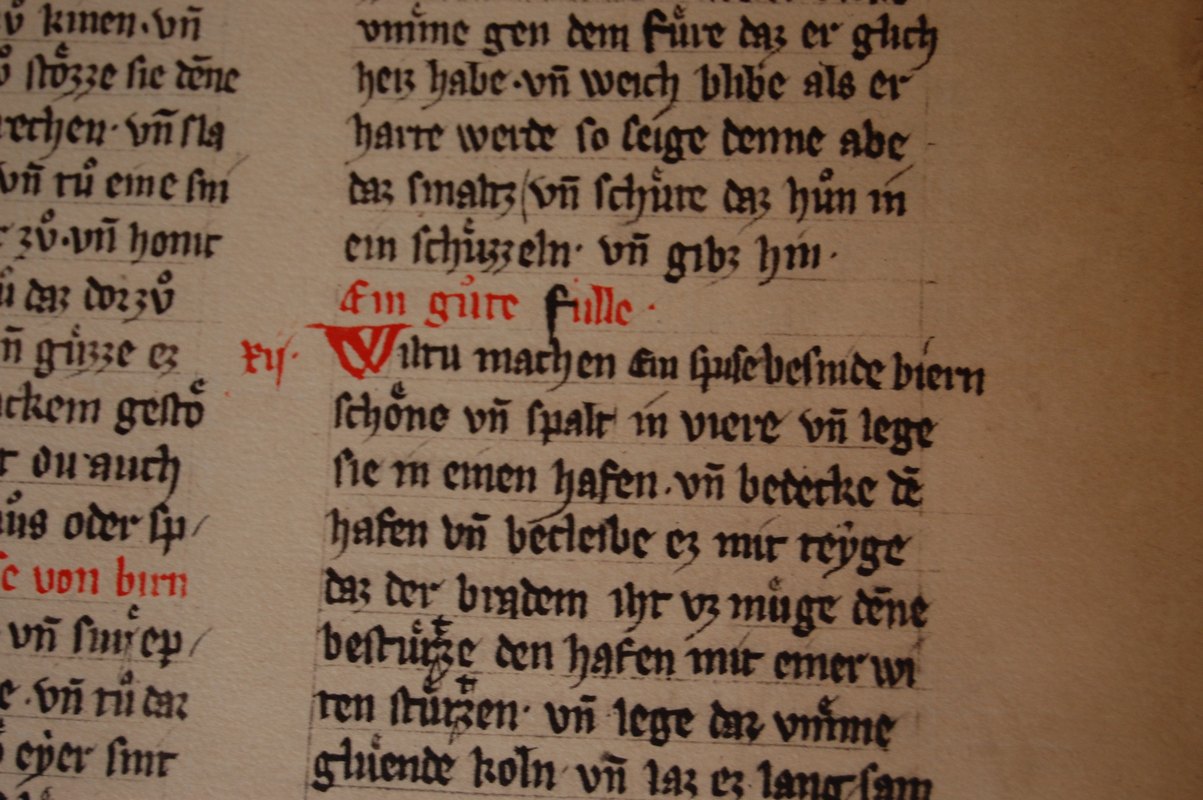 kmen· vn̄
stoͤzze sie dēne
rechen· vn̄ sla
vn̄ tuͦ eine smi
zvͦ· vn̄ honic
daz dorzvͦ
n̄ guͤzze ez
ckem gestoͤ
t du auch
oder sp
se von birn
vn̄ ep
e· vn̄ tuͦ daz
eyer smt
vm̄me gen dem fuͤre daz er glich
heiz habe· vn̄ weich blibe als er
harte werde so seige denne abe
daz smaltz vn̄ schuͤte daz huͦn in
ein schuͤzzeln· vn̄ gibz hin·
Ein guͦte fulle·
xij· Wiltu machen Ein spise besnide biern
schoͤne vn̄ spalt in viere vn̄ lege
sie in einen hafen· vn̄ bedecke dē
hafen vn̄ becleibe ez mit teyge
daz der bradem iht vz muͤge dēne
bestuͤrtze den hafen mit einer wi
ten stuͤrtzen· vn̄ lege daz vm̄me
gluͤende koln vn̄ laz ez langsam